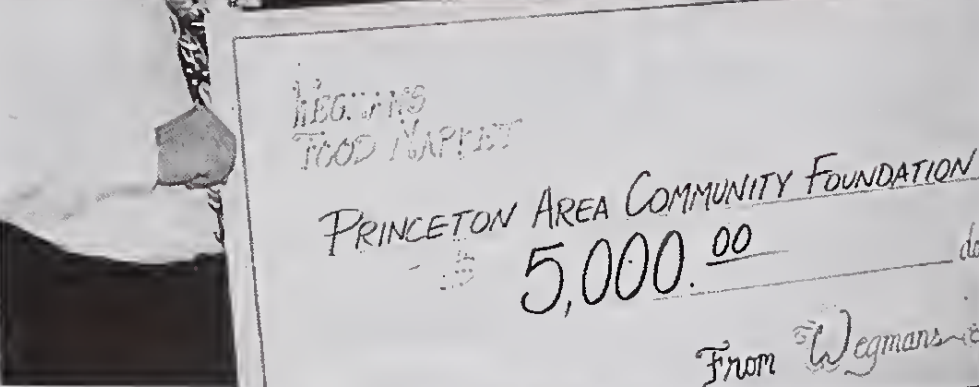 WEGMANS
FOOD MARKET
PRINCETON AREA COMMUNITY FOUNDATION
$ 5,000.00
From Wegmans